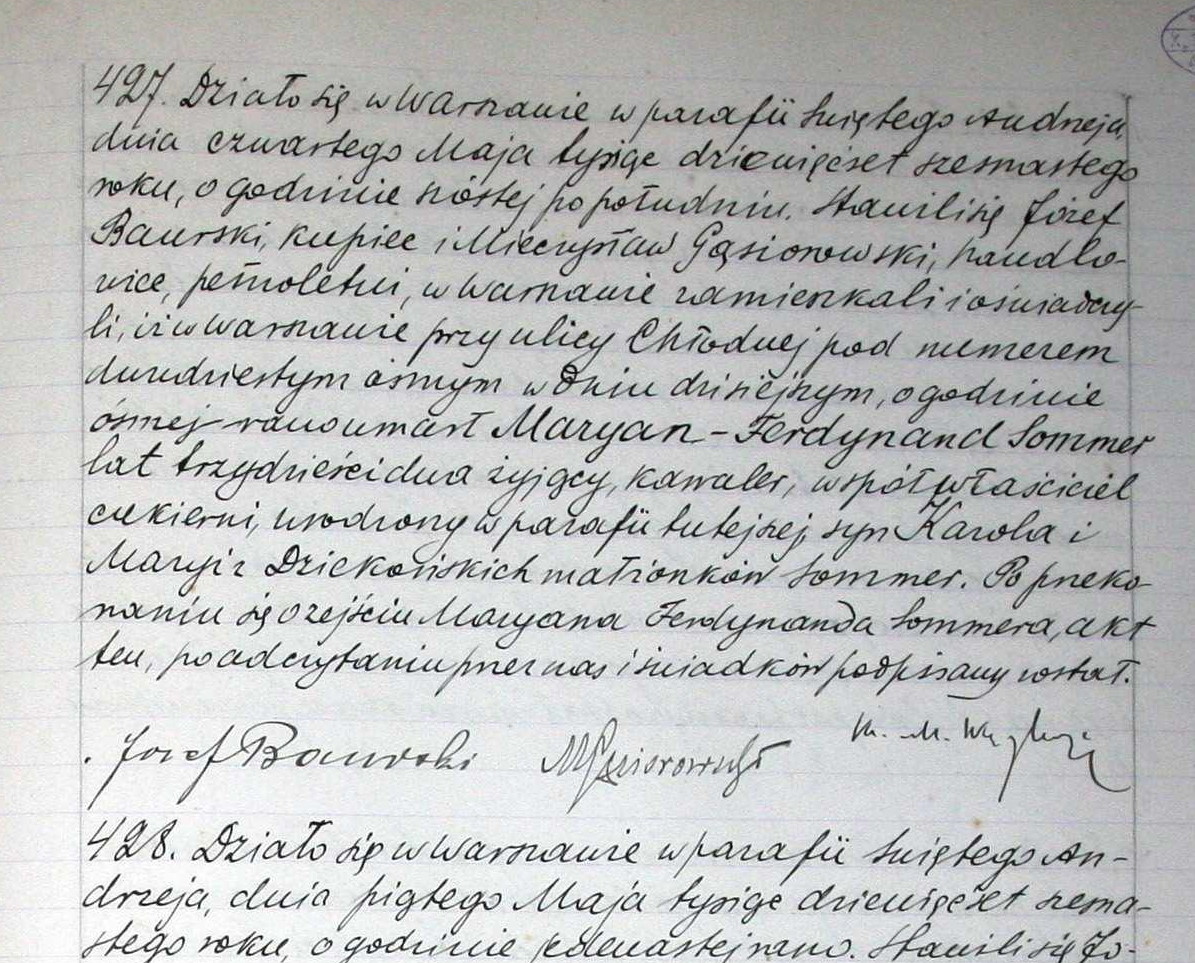 427. Działo się w Warszawie w parafii świętego Andrzeja,
dnia czwartego Maja tysiąc dziewięćset szesnastego
roku, o godzinie szóstej po południu. Stawili się Józef
Baurski, kupiec i Mieczysław Gąsiorowski, handlo-
wiec, pełnoletni, w Warszawie zamieszkali i oświadczy-
li, iż w Warszawie przy ulicy Chłodnej pod numerem
dwudziestym ósmym w dniu dzisiejszym, o godzinie
ósmej rano umarł Maryan-Ferdynand Sommer
lat trzydzieści dwa żyjący, kawaler, współwłaściciel
cukierni, urodzony w parafii tutejszej, syn Karola i
Maryi z Dziekońskich małżonków Sommer. Po przeko-
naniu się o zejściu Maryana Ferdynanda Sommera, akt
ten, po odczytaniu przez nas i świadków podpisany został.
Józef Baurski MGąsiorowski
428. Działo się w Warszawie w parafii świętego An-
drzeja, dnia piątego Maja tysiąc dziewięćset szesna-
stego roku, o godzinie jedenastej rano. Stawili się Jó-